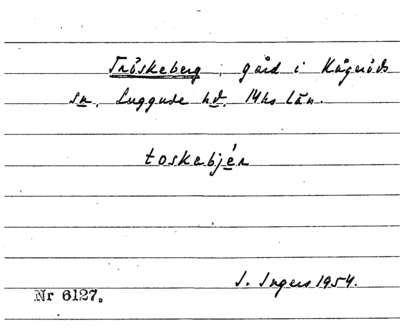 Tröskeberg, gård i Kågeröds
sn, Luggude hd, Mhs län.
toskabjér
I. Ingers 1954.
Nr 6127.